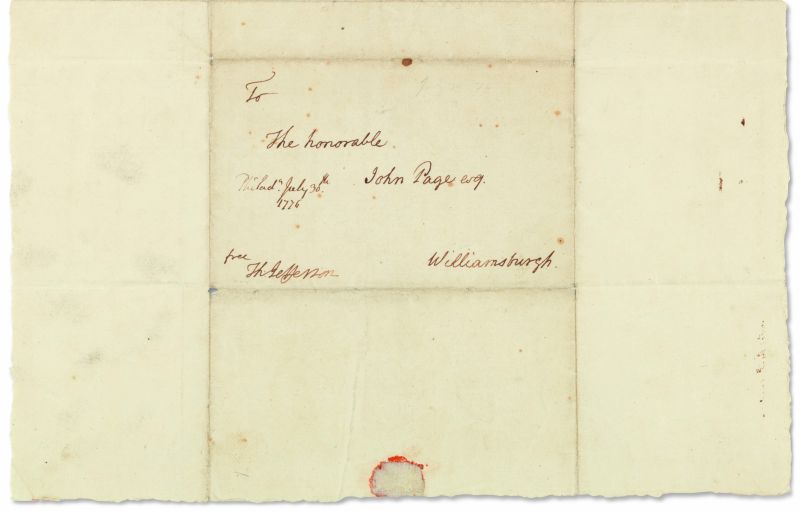 To
The honorable
John Page esq.
Philad.ᵃ July 30.ᵗʰ
1776
free
Th Jefferson
Williamsburgh.